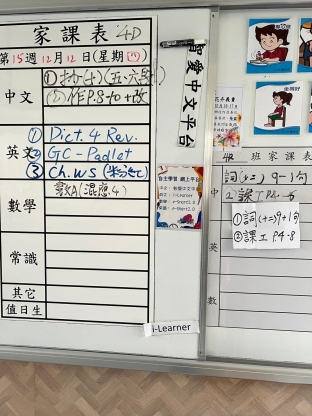 家課表 4D
第15週12月12日(星期四)
中文
①抄(十)(五、六段)
②作P.8-10+改
英文
① Dict. 4 Rev.
② GC - Padlet
③ Ch. WS
數學
(混應4)
常識
其它
值日生
i-Learner
愛中文平台
自主學習網上平台
坐得好
4B 班家課表
中
詞(十二)9-1句
②課工P.4-8
①詞(十二)9+1句
②課工P.4-8
英
數